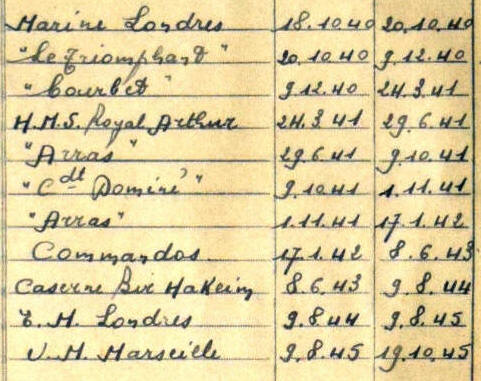 Marine Londres 18.10.40 20.10.40
"Le Triomphant" 20.10.40 9.12.40
"Courbet" 9.12.40 24.3.41
H.M.S. Royal Arthur 24.3.41 29.6.41
"Arras" 29.6.41 9.10.41
"Cdt Dominé" 9.10.41 1.11.41
"Arras" 1.11.41 17.1.42
Commandos 17.1.42 8.6.43
Caserne Bir Hakeim 8.6.43 9.8.44
E.M. Londres 9.8.44 9.8.45
U.M. Marseille 9.8.45 19.10.45